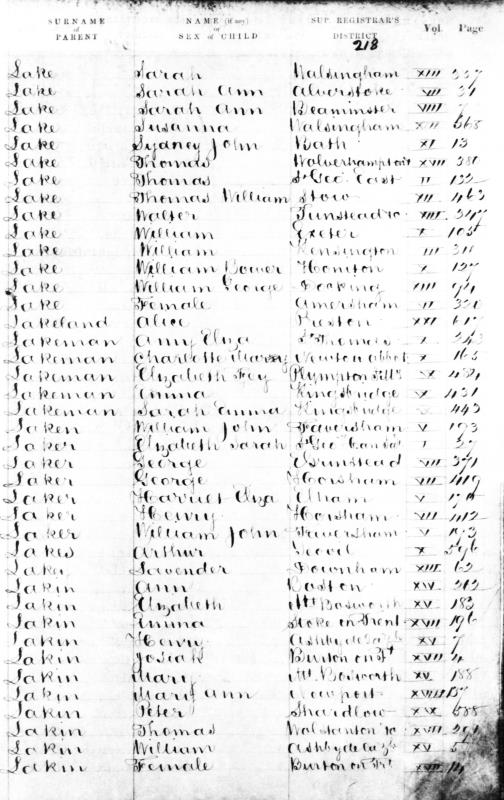 SURNAME OF PARENT NAME (if any) or SEX of CHILD SUP. REGISTRAR'S DISTRICT Vol. Page
218
Lake Sarah Walsingham XIII 337
Lake Sarah Ann Alverstoke VII 31
Lake Sarah Ann Beaminster VIII 7
Lake Susanna Walsingham XIII 368
Lake Sydney John Bath XI 13
Lake Thomas Wolverhampton XVII 381
Lake Thomas St Geo. East II 132
Lake Thomas William Stow XII 463
Lake Walter Tunstead XIII 347
Lake William Exeter X 105
Lake William Kensington III 311
Lake William Bower Honiton X 137
Lake William George Docking XIII
Lake Female Amersham VI 331
Lakeland Alice Preston XXI
Lakeman Amy Eliza St Thomas X 343
Lakeman Charlotte Newton Abbot X 165
Lakeman Elizabeth Fey Plympton X 421
Lakeman Emma Kingsbridge X 431
Lakeman Sarah Emma Kingsbridge X 443
Laken William John Faversham V 193
Laker Elizabeth Sarah St Geo. I 37
Laker George E. Grinstead VII 371
Laker George Horsham VII 419
Laker Harriet Eliza Elham V
Laker Henry Horsham VII 412
Laker William John Faversham V 193
Lakes Arthur Yeovil X 596
Lakey Lavender Downham XIII 62
Lakin Ann Baston XIV 212
Lakin Elizabeth Mt Bosworth XV 183
Lakin Emma Stoke on Trent XVII 196
Lakin Henry Ashby de la Zh XV 7
Lakin Josiah Burton on Tt XVII 4
Lakin Mary Mt. Bosworth XV 188
Lakin Mary Ann Newport XVIII 137
Lakin Peter Shardlow XIX 588
Lakin Thomas Walstanton XVII 291
Lakin William Ashby de la Zh XV 5
Lakin Female Burton on Trt XVII 14